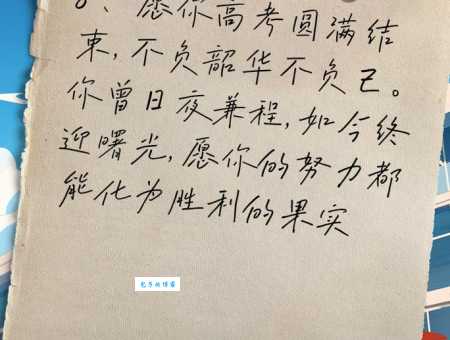 8、愿你高考圆满结
束，不负韶华不负己。
你曾日夜兼程，如今终
迎曙光，愿你的努力都
能化为胜利的果实